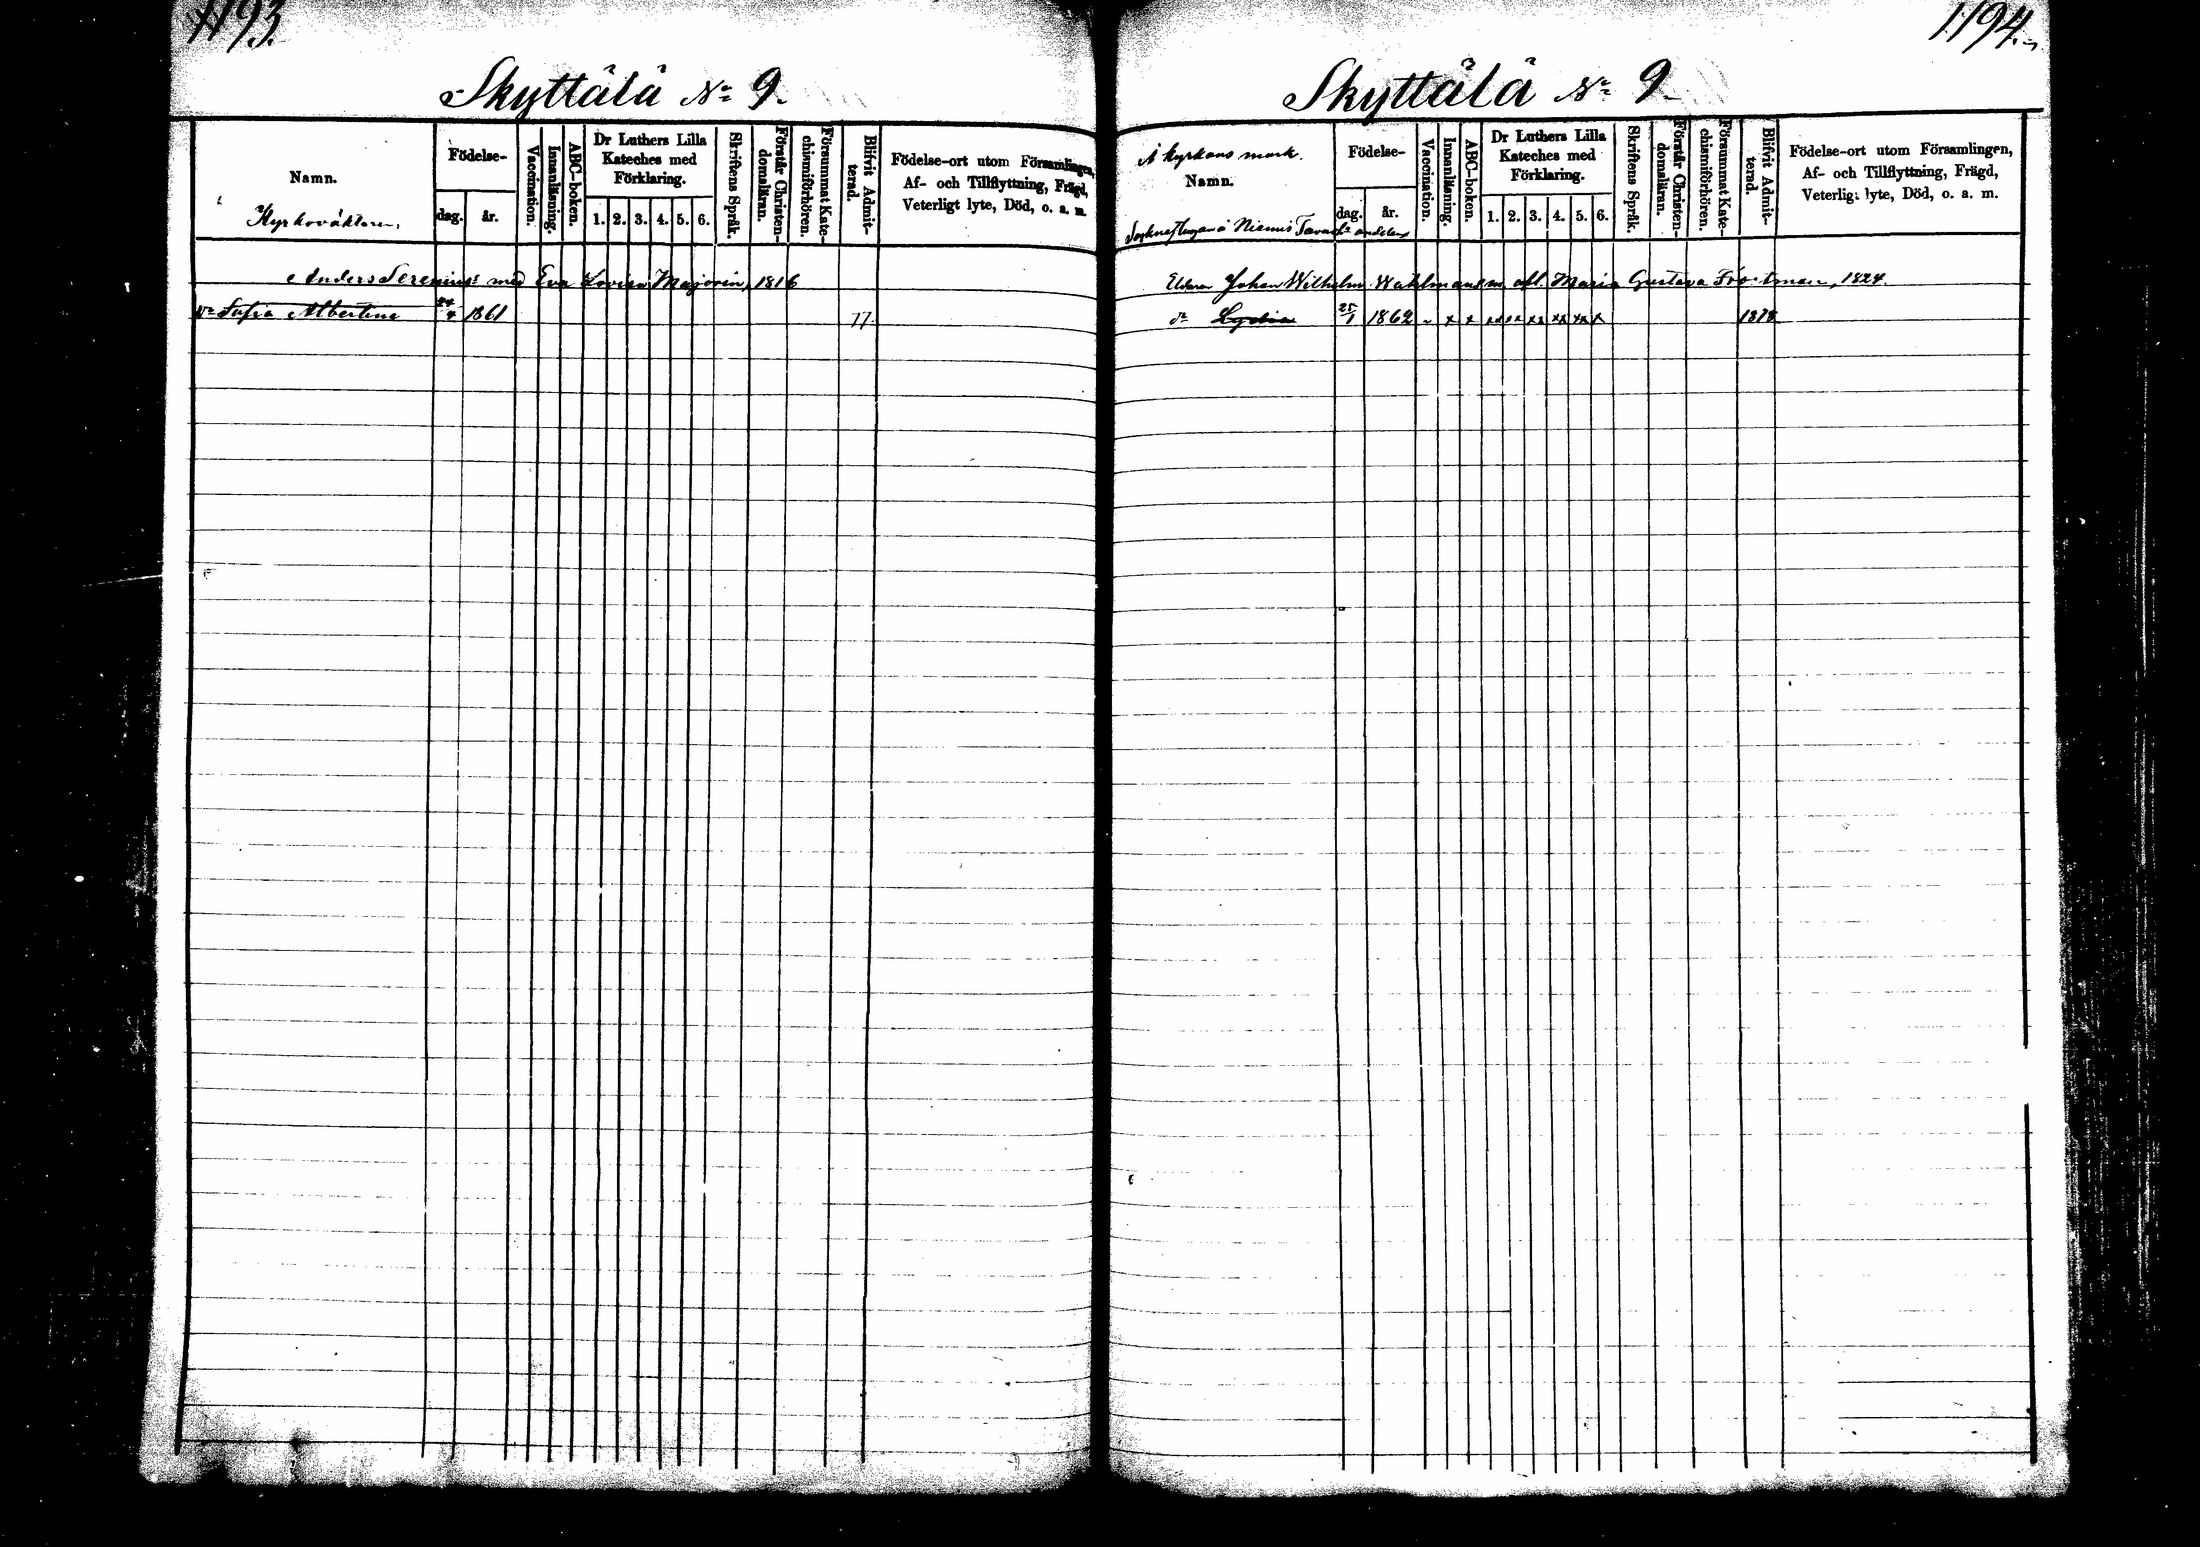 1193.
Skyttälä No 9.
Namn.
Kyrkoväktaren,
Födelse-
dag.
år.
Vaccination.
Innanläsning.
ABC-boken.
Dr Luthers Lilla
Kateches med
Förklaring.
1. 2. 3. 4. 5. 6.
Skriftens Språk.
Förstår Christen-
domsläran.
Försummat Kate-
chismiförhören.
Blifvit Admit-
terad.
Födelse-ort utom Församlingen,
Af- och Tillflyttning, Frägd,
Veterligt lyte, Död, o. a. m.
Anders Serenius med Eva Lovisa Majorin, 1816
dr Sofia Albertina 24/4 1861 77.
1194.
Skyttälä No 9.
Å kyrkans mark.
Namn.
å Niemis
Födelse-
dag.
år.
Vaccination.
Innanläsning.
ABC-boken.
Dr Luthers Lilla
Kateches med
Förklaring.
1. 2. 3. 4. 5. 6.
Skriftens Språk.
Förstår Christen-
domsläran.
Försummat Kate-
chismiförhören.
Blifvit Admit-
terad.
Födelse-ort utom Församlingen,
Af- och Tillflyttning, Frägd,
Veterligt lyte, Död, o. a. m.
Johan Wilhelm Wahlman m. afl. Maria Gustava Frostman, 1824.
dr Lydia 25/1 1862 x x xx xx xx xx xx x 1878